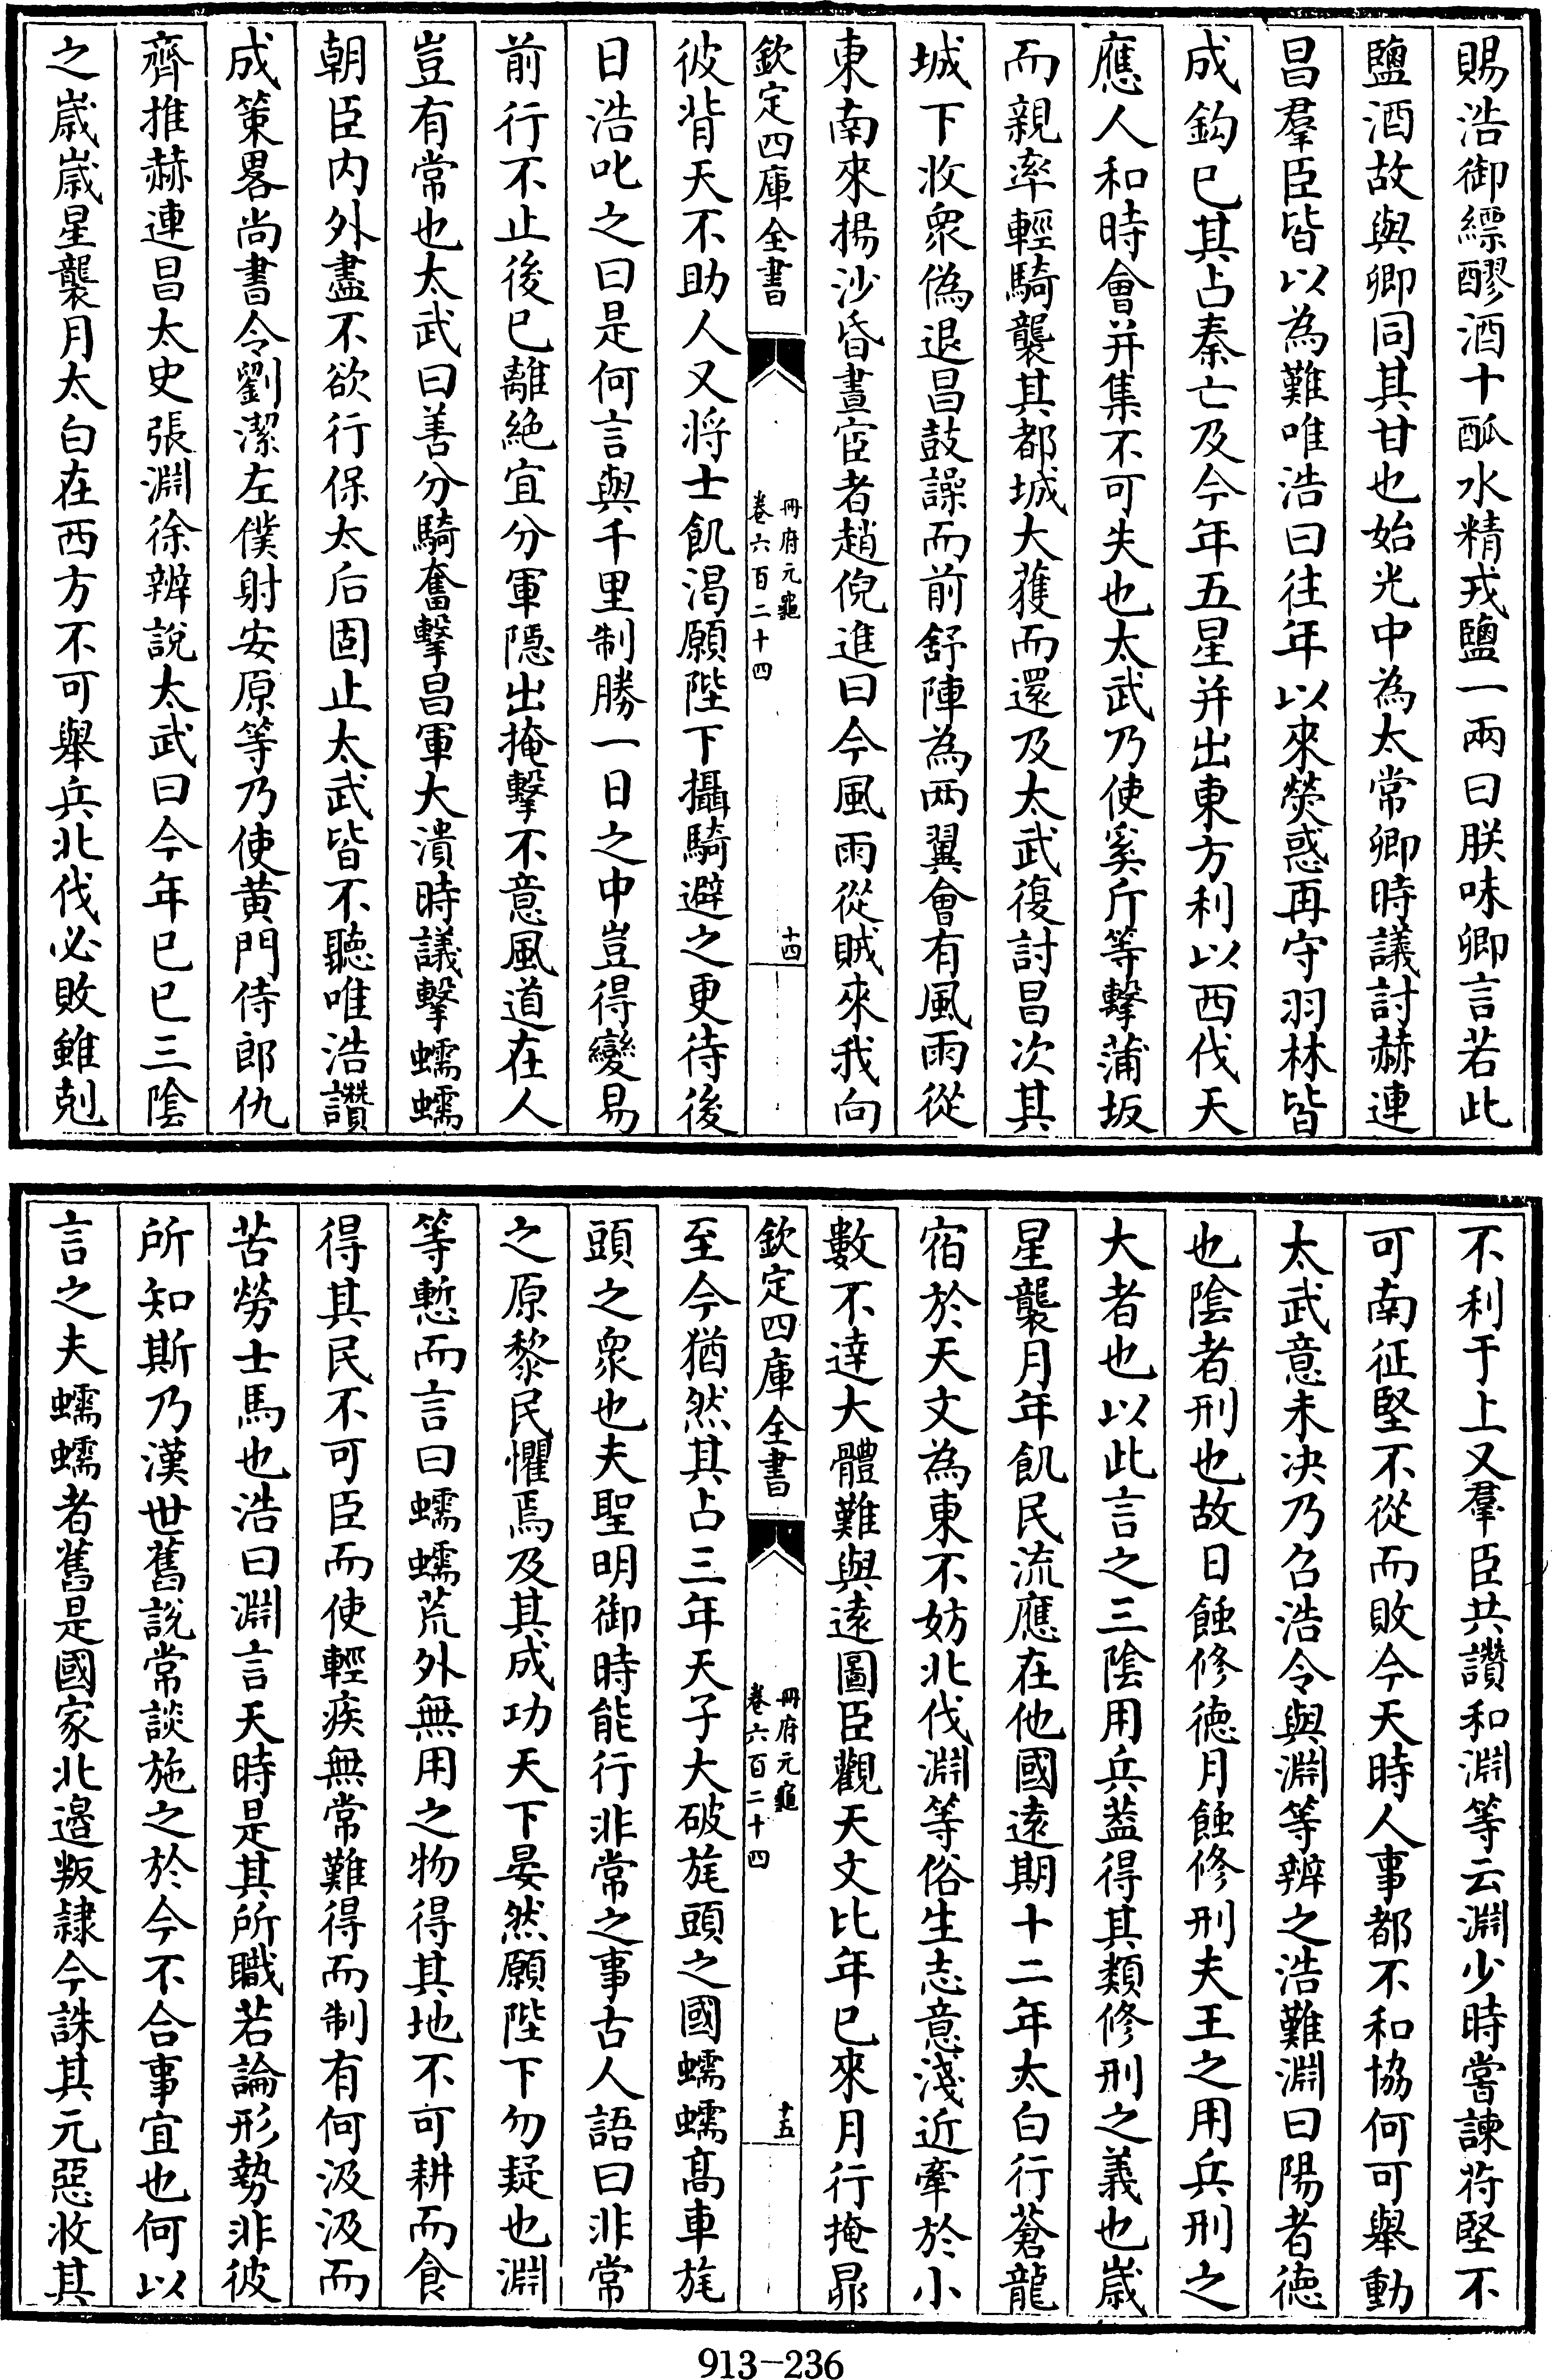 賜浩御縹醪酒十觚水精戎鹽一兩曰朕味卿言若此
鹽酒故與卿同其甘也始光中為太常卿時議討赫連
昌羣臣皆以為難唯浩曰往年以來熒惑再守羽林皆
成鈎已其占秦亡及今年五星并出東方利以西伐天
應人和時會并集不可失也太武乃使奚斤等擊蒲坂
而親率輕騎襲其都城大獲而還及太武復討昌次其
城下收衆偽退昌鼓譟而前舒陣為兩翼會有風雨從
東南來揚沙昏晝宦者趙倪進曰今風雨從賊來我向
欽定四庫全書
冊府元龜
卷六百二十四
十四
彼背天不助人又将士飢渴願陛下攝騎避之更待後
日浩叱之曰是何言與千里制勝一日之中豈得變易
前行不止後已離絶宜分軍隱出掩擊不意風道在人
豈有常也太武曰善分騎奮擊昌軍大潰時議擊蠕蠕
朝臣内外盡不欲行保太后固止太武皆不聽唯浩讚
成策畧尚書令劉潔左僕射安原等乃使黄門侍郎仇
齊推赫連昌太史張淵徐辨說太武曰今年已巳三陰
之歲歲星襲月太白在西方不可舉兵北伐必敗雖剋
不利于上又羣臣共讚和淵等云淵少時嘗諫苻堅不
可南征堅不從而敗今天時人事都不和協何可舉動
太武意未决乃召浩令與淵等辨之浩難淵曰陽者德
也陰者刑也故日蝕修德月蝕修刑夫王之用兵刑之
大者也以此言之三陰用兵葢得其類修刑之義也歲
星襲月年飢民流應在他國遠期十二年太白行蒼龍
宿於天文為東不妨北伐淵等俗生志意淺近牽於小
數不達大體難與遠圖臣觀天文比年已來月行掩昴
欽定四庫全書
冊府元龜
卷六百二十四
十五
至今猶然其占三年天子大破旄頭之國蠕蠕髙車旄
頭之衆也夫聖明御時能行非常之事古人語曰非常
之原黎民懼焉及其成功天下晏然願陛下勿疑也淵
等慙而言曰蠕蠕荒外無用之物得其地不可耕而食
得其民不可臣而使輕疾無常難得而制有何汲汲而
苦勞士馬也浩曰淵言天時是其所職若論形勢非彼
所知斯乃漢世舊說常談施之於今不合事宜也何以
言之夫蠕蠕者舊是國家北邉叛隷今誅其元惡收其
913-236